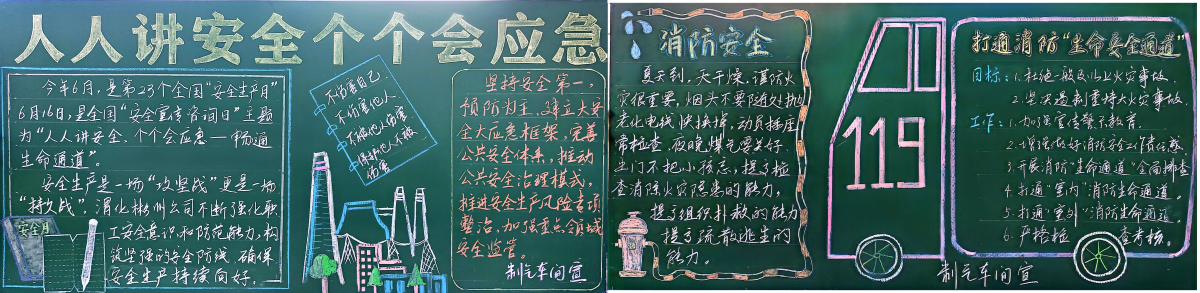 人人讲安全个个会应急
今年6月，是第23个全国"安全生产月"
6月16日，是全国"安全宣传咨询日"主题
为"人人讲安全、个个会应急—畅通
生命通道"。
安全生产是一场"攻坚战"更是一场
"持久战"，渭化彬州公司不断强化职
工安全意识和防范能力，构
筑坚强的安全防线，确保
安全生产持续向好。
安全月
不伤害自己
不伤害他人
不被他人伤害
保护他人不被
伤害
坚持安全第一，
预防为主，建立大安
全大应急框架，完善
公共安全体系，推动
公共安全治理模式，
推进安全生产风险专项
整治，加强重点领域
安全监管。
制气车间宣
消防安全
夏天到，天干燥，谨防火
灾很重要，烟头不要随处抛
老化电线快换掉，动员插座
常检查，夜晚煤气要关好，
出门不把小孩忘，提高检
查消除火灾隐患的能力，
提高组织扑救的能力
提高疏散逃生的
能力。
119
打通消防"生命安全通道"
目标：1.杜绝一般及以上火灾事故。
2.坚决遏制重特大火灾事故。
工作：1.加强宣传警示教育。
2.增强做好消防安全工作责任感
3.开展消防"生命通道"全面排查
4.打通"室内"消防生命通道。
5.打通"室外"消防生命通道
6.严格检 查考核。
制气车间宣